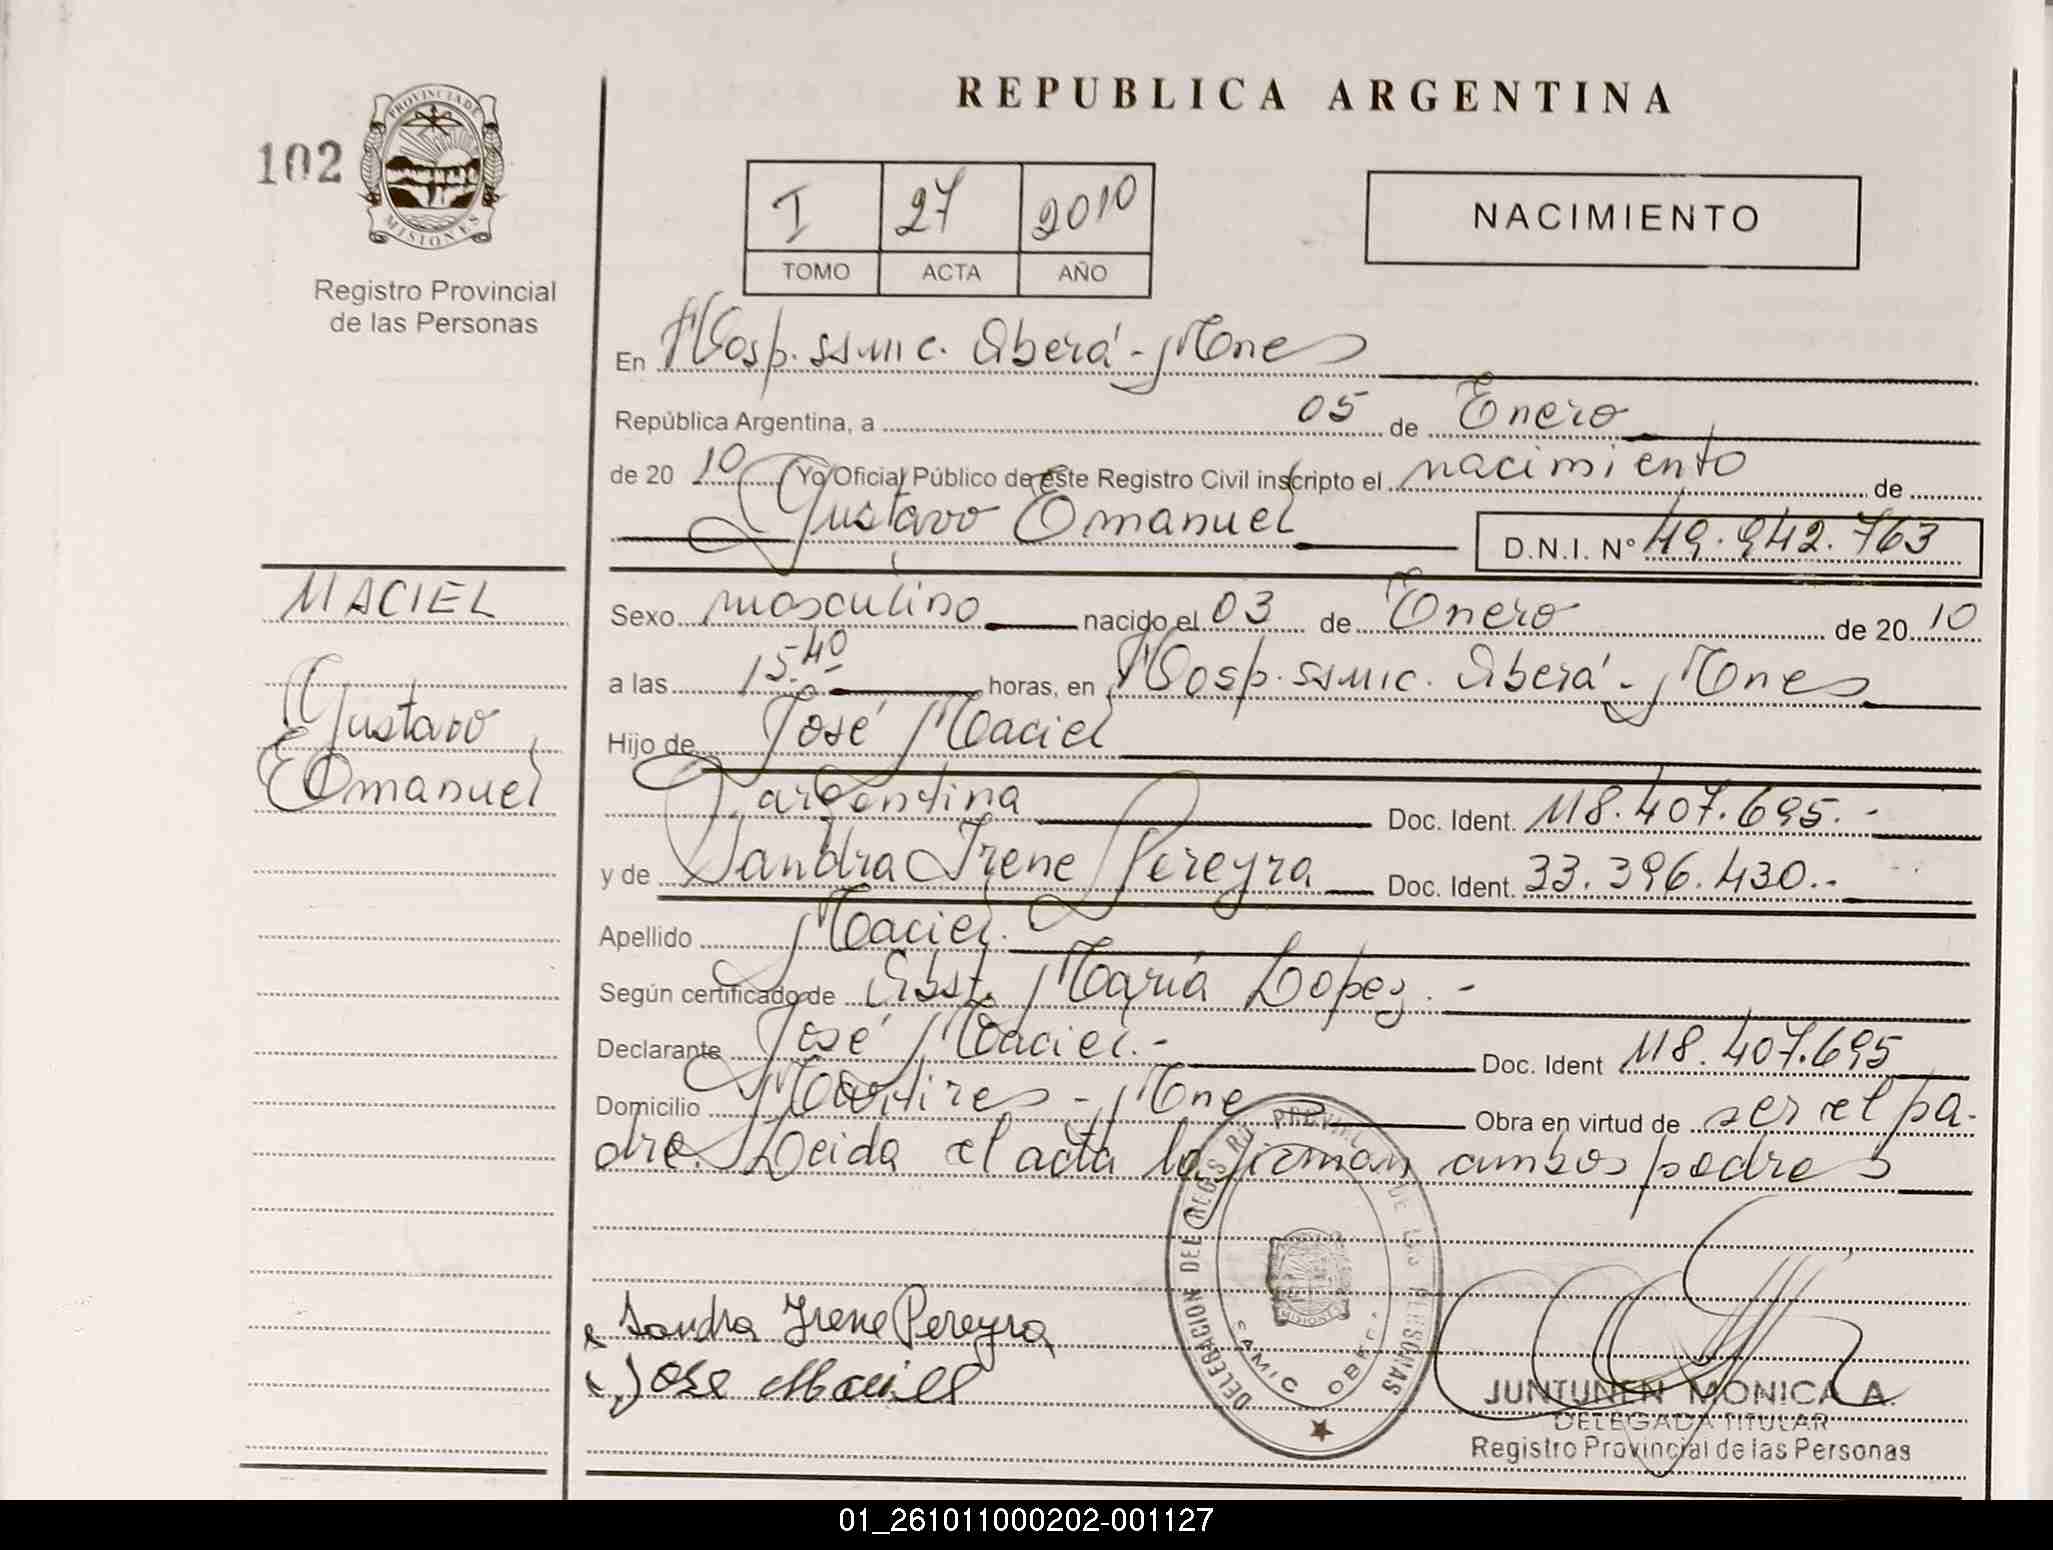 REPUBLICA ARGENTINA
102
PROVINCIA DE
MISIONES
Registro Provincial
de las Personas
I 27 2010
TOMO ACTA AÑO
NACIMIENTO
En Hosp. ssmic. Oberá - Mnes
República Argentina, a 05 de Enero
de 20 10 Yo Oficial Público de este Registro Civil inscripto el nacimiento de
Gustavo Emanuel D.N.I. Nº 49.942.763
MACIEL
Gustavo
Emanuel
Sexo masculino nacido el 03 de Enero de 20 10
a las 15.40 horas, en Hosp. ssmic. Oberá - Mnes
Hijo de José Maciel
argentina Doc. Ident. M8.407.695.-
y de Sandra Irene Pereyra Doc. Ident. 33.396.430.-
Apellido Maciel.
Según certificado de Obst. María Lopez.-
Declarante José Maciel.- Doc. Ident M8.407.695
Domicilio Mártires - Mne Obra en virtud de ser el pa-
dre. Leida el acta la firman ambos padres
Sandra Irene Pereyra
Jose Maciel
DELEGACION DEL REGIS
DE LAS PERSONAS
SAMIC OBERA
JUNTUNEN MONICA A.
DELEGADA TITULAR
Registro Provincial de las Personas
01_261011000202-001127